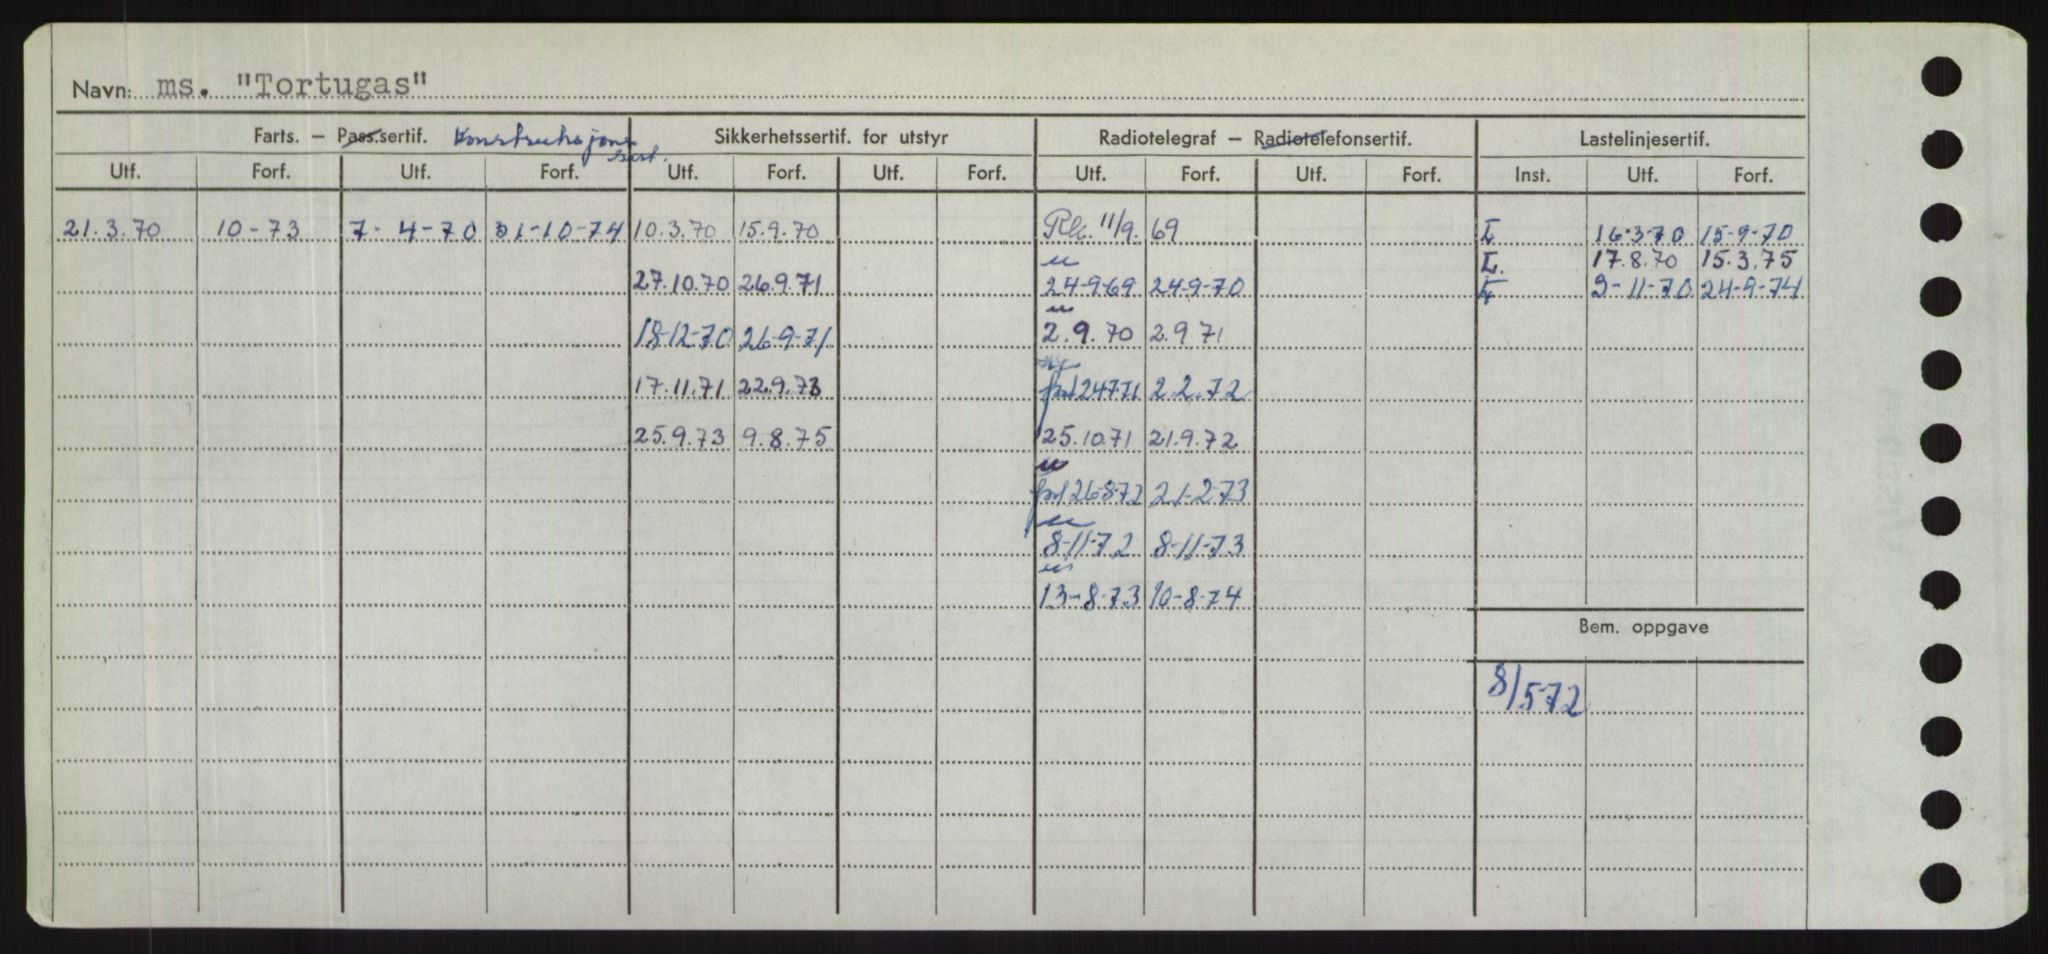 Navn: ms. "Tortugas"
Farts. — Pass.sertif. Konstruksjons sert. Sikkerhetssertif. for utstyr Radiotelegraf — Radiotelefonsertif. Lastelinjesertif.
Utf. Forf. Utf. Forf. Utf. Forf. Utf. Forf. Utf. Forf. Utf. Forf. Inst. Utf. Forf.
21.3.70 10-73 7-4-70 31-10-74 10.3.70 15.9.70 11/9.69 I 16-3-70 15-9-70
I. 17.8.70 15.3.75
27.10.70 26.9.71 24-9-69 24-9-70 I 3-11-70 24-9-74
18-12-70 26-9-71 2.9.70 2.9 71
17.11.71 22.9.73 24771 2.2.72
25.9.73 9.8.75 25.10.71 21.9.72
26-8-72 21-2-73
8-11-72 8-11-73
13-8-73 10-8-74
Bem. oppgave
8/5-72